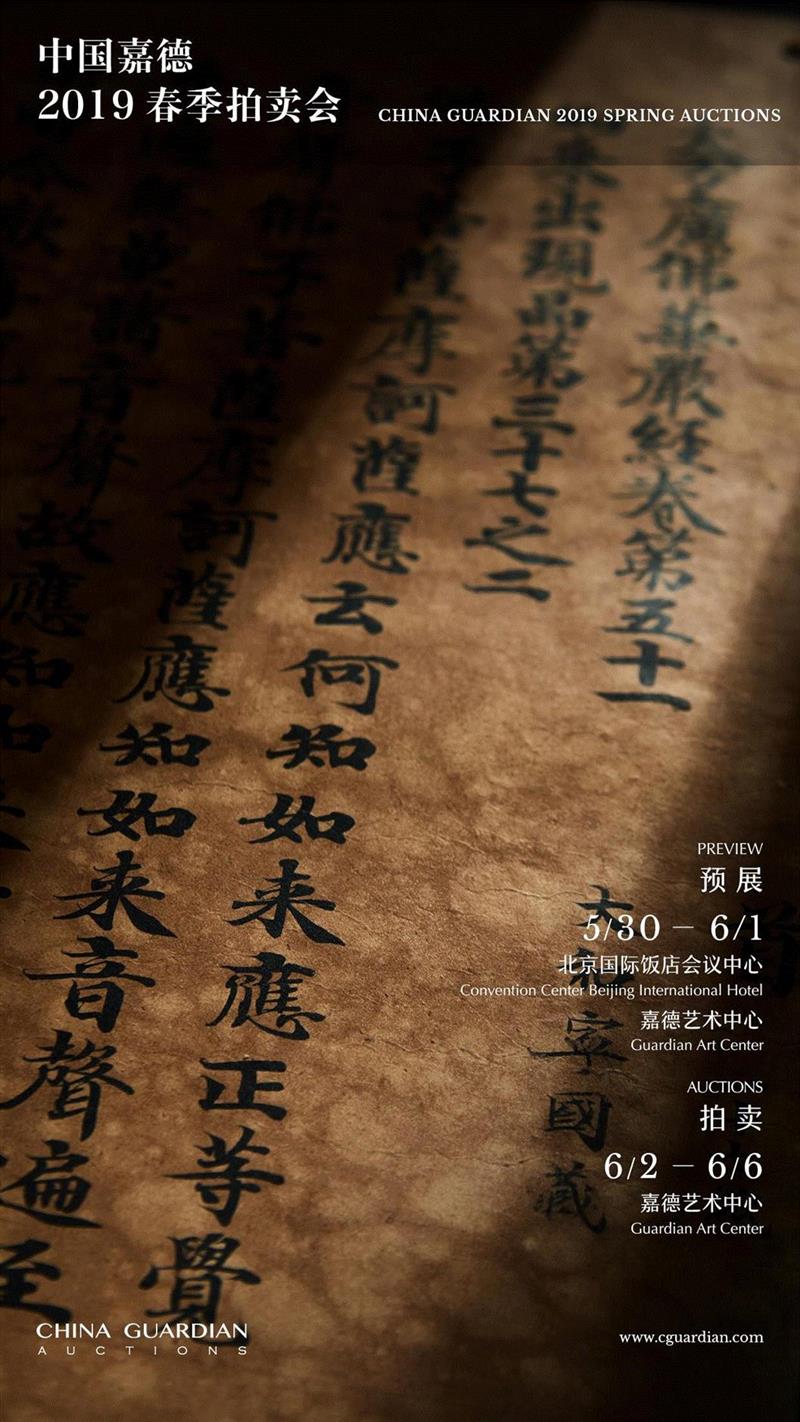 中国嘉德
2019 春季拍卖会
CHINA GUARDIAN 2019 SPRING AUCTIONS
廣佛華嚴經卷第五十一
来出現品第三十七之二
菩薩摩訶薩應云何知如来應正等覺
佛子菩薩摩訶薩應知如来音聲遍至
音聲故應知
PREVIEW
预 展
5/30 — 6/1
北京国际饭店会议中心
Convention Center Beijing International Hotel
嘉德艺术中心
Guardian Art Center
大和寧國藏
AUCTIONS
拍 卖
6/2 — 6/6
嘉德艺术中心
Guardian Art Center
CHINA GUARDIAN
AUCTIONS
www.cguardian.com